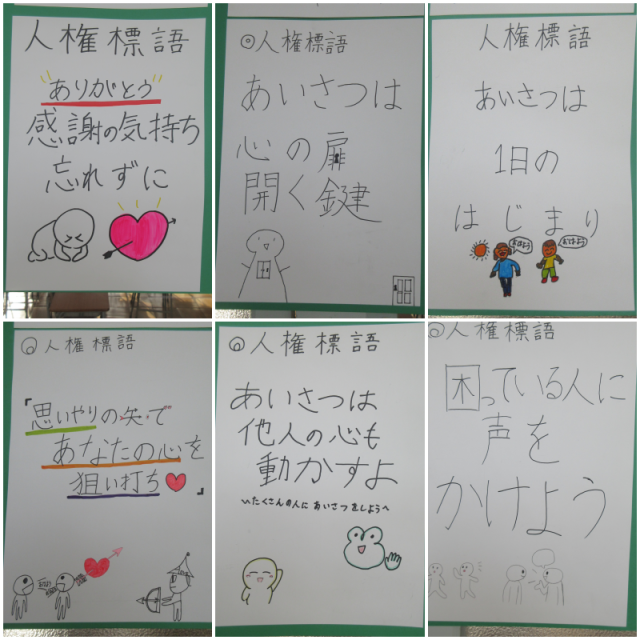 人権標語
ありがとう
感謝の気持ち
忘れずに
◎人権標語
あいさつは
心の扉
開く鍵
人権標語
あいさつは
1日の
はじまり
おはよう
おはよう
人権標語
「思いやりの矢で
あなたの心を
狙い打ち」
人権標語
あいさつは
他人の心も
動かすよ
〜たくさんの人にあいさつをしよう〜
◎人権標語
困っている人に
声を
かけよう